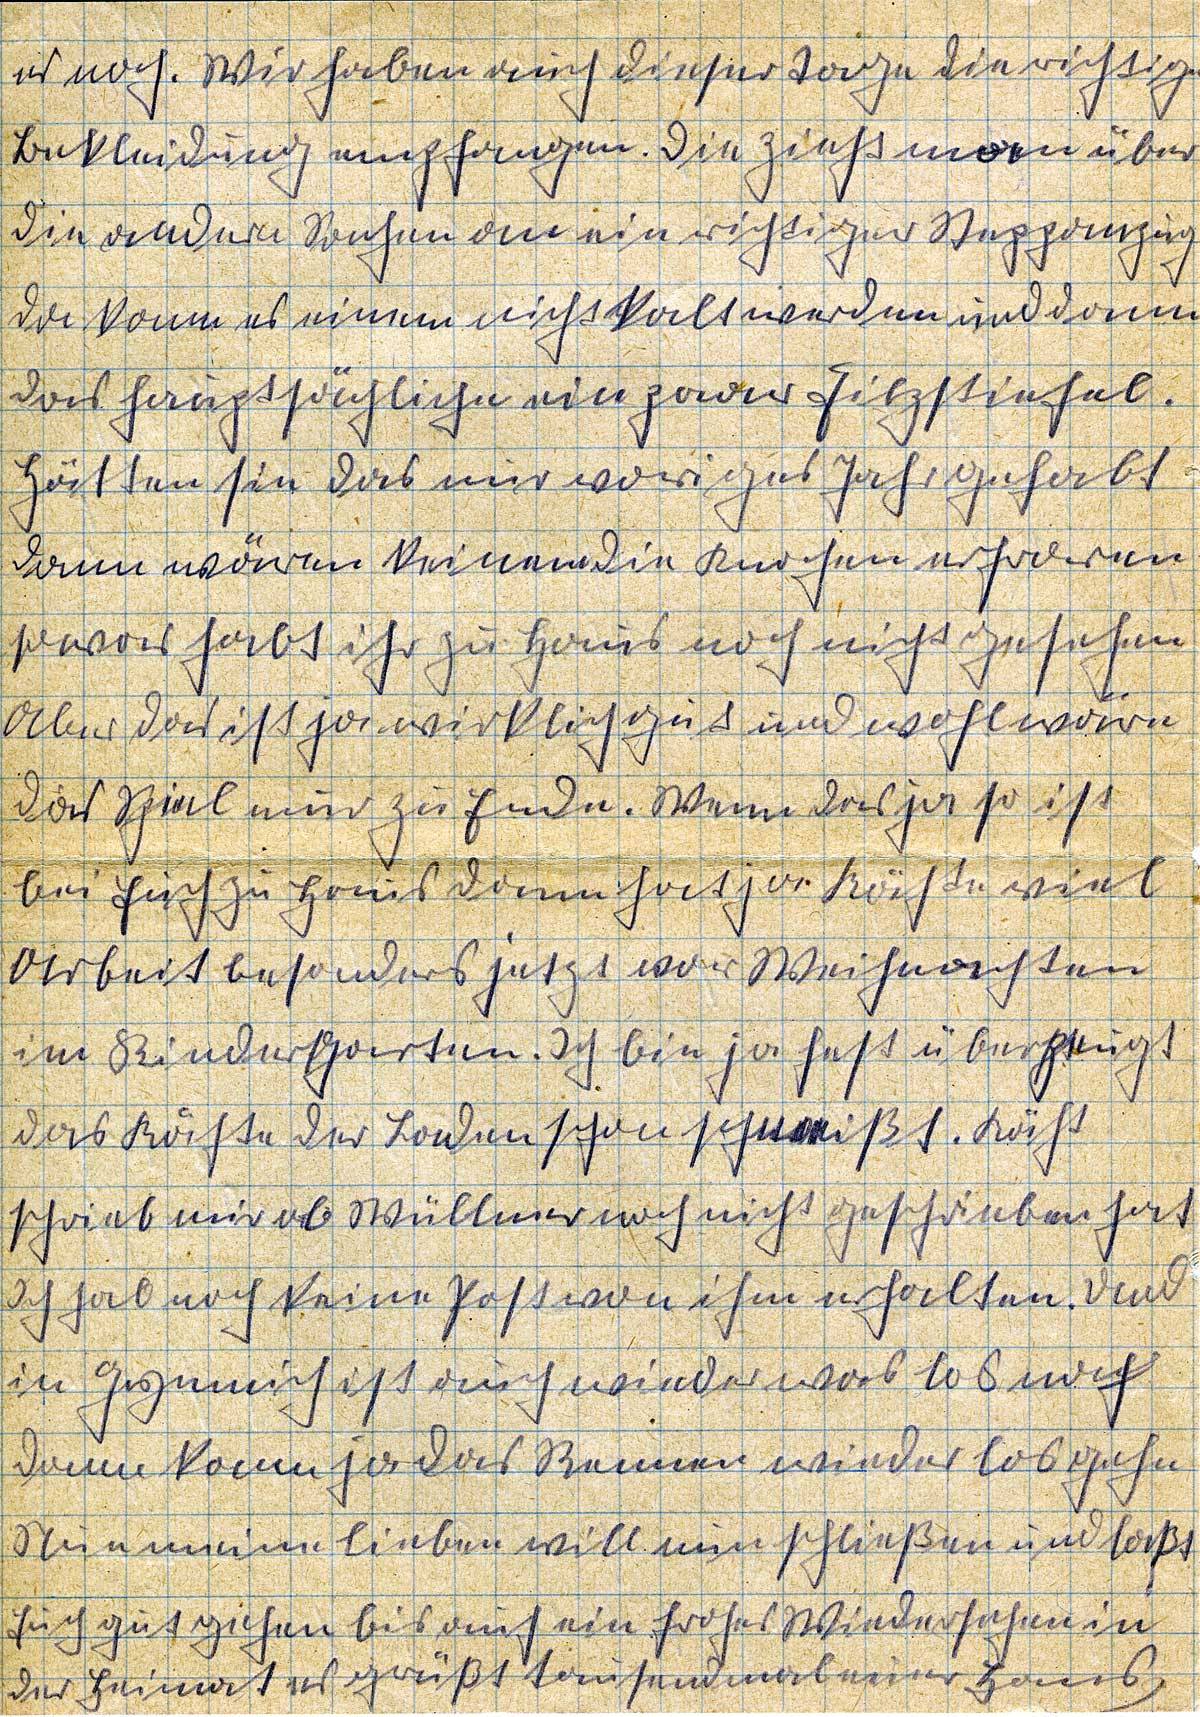 es noch. Wir haben auch dieser Tage die richtige
Bekleidung empfangen. Die zieht man über
die andern Sachen an ein richtiger Steppanzug
da kann es einem nicht kalt werden und dann
das hauptsächliche ein paar Filzstiefel.
Hätten sie das nur voriges Jahr gehabt
dann wären keinem die Knochen erfroren
sowas habt ihr zu Haus noch nicht gesehen
Aber das ist ja wirklich gut und wohl wäre
das Spiel nur zu Ende. Wenn das ja so ist
bei Euch zu Haus dann hat ja Käthe viel
Arbeit besonders jetzt vor Weihnachten
im Kindergarten. Ich bin ja fest überzeugt
das Käthe der Laden schon schmeißt. Käth
schrieb mir ob Wüllner noch nicht geschrieben hat
Ich hab noch keine Post von ihm erhalten. Und
in Gymnich ist auch wieder was los noch
dann kann ja das Rennen wieder los gehn
Nun meine lieben will nun schließen und laßt
Euch gut gehen bis auf ein frohes Wiedersehen in
der Heimat es grüßt tausendmal euer Hans